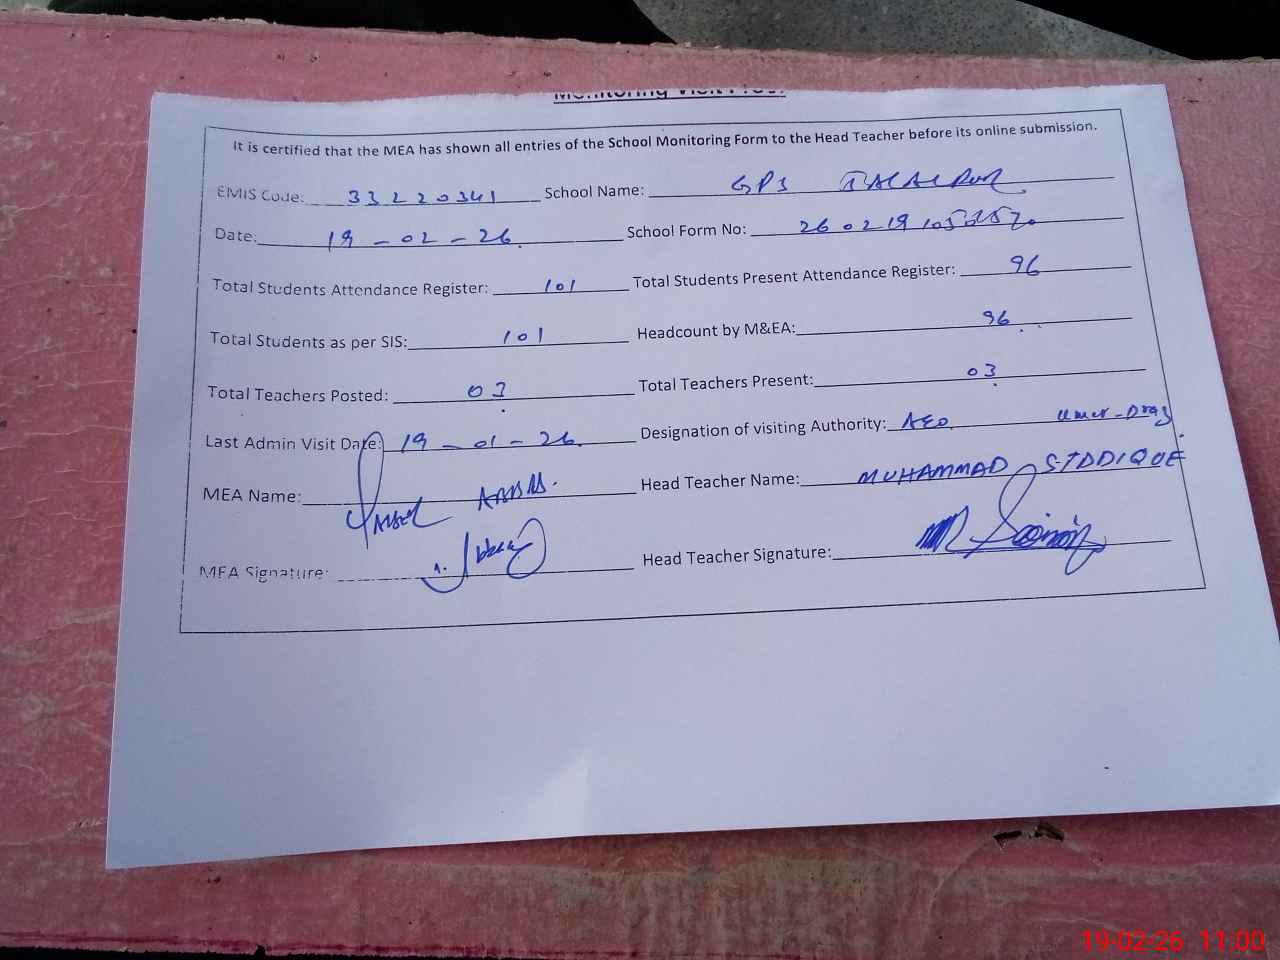 Monitoring Visit Proof
It is certified that the MEA has shown all entries of the School Monitoring Form to the Head Teacher before its online submission.
EMIS Code: 33220341 School Name: GPS
Date: 19-02-26. School Form No:
Total Students Attendance Register: 101 Total Students Present Attendance Register: 96
Total Students as per SIS: 101 Headcount by M&EA: 96
Total Teachers Posted: 03 Total Teachers Present: 03
Last Admin Visit Date: 19-01-26. Designation of visiting Authority: AEO Umer-Draz
MEA Name: Head Teacher Name: MUHAMMAD SIDDIQUE
MEA Signature: Head Teacher Signature:
19-02-26 11:00